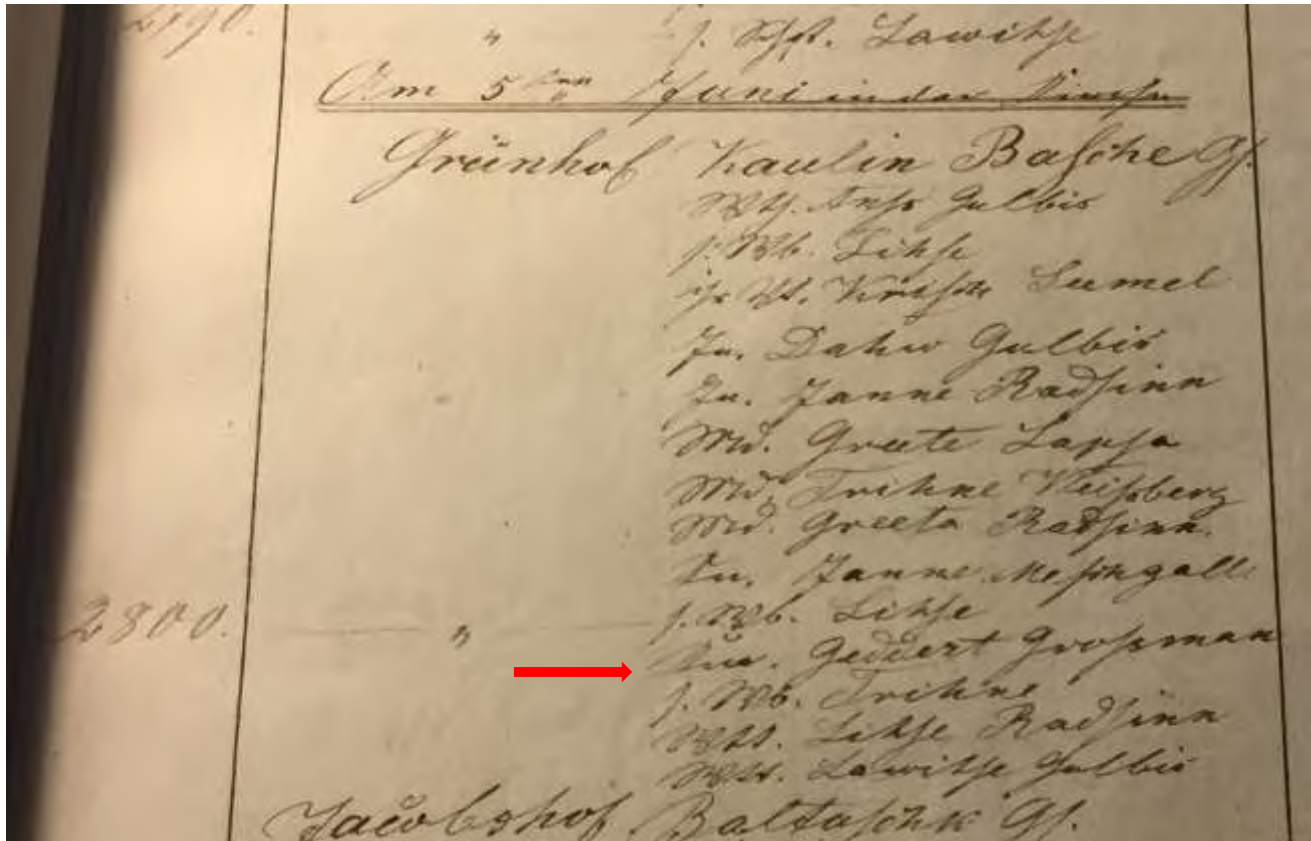 2790. " s. Schst. Lawihse
Am 5ten Juni in der Kirche
Grünhof Kaulin Basche Gs.
Wth. Anss Gulbis
s. Wb. Lihse
Krisch Lumel
Jn. Dahw Gulbis
Jn. Janne Radsinn
Md. Greete Lapsa
Md. Trihne Weissberg
Md. Greeta Radsinn.
Kn. Janne
2800. " s. Wb. Lihse
Geddert Grossman
s. Wb. Trihne
Wtt. Lihse Radsinn
Lawihse Gulbis
Jacobshof Baltaschk Gs.